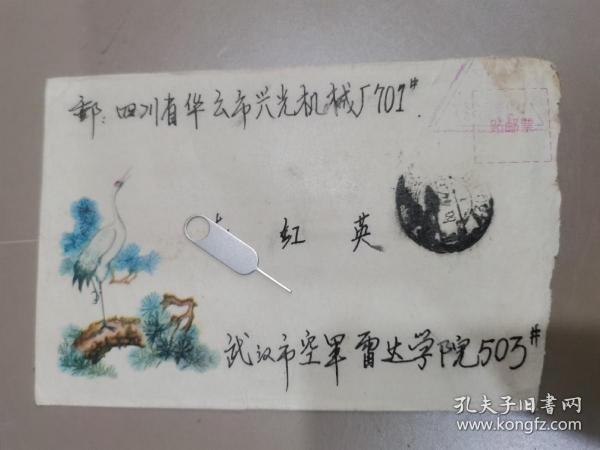 邮：四川省华云市兴光机械厂701#.
贴邮票
红英
武汉市空军雷达学院503#
孔夫子旧书网
www.kongfz.com